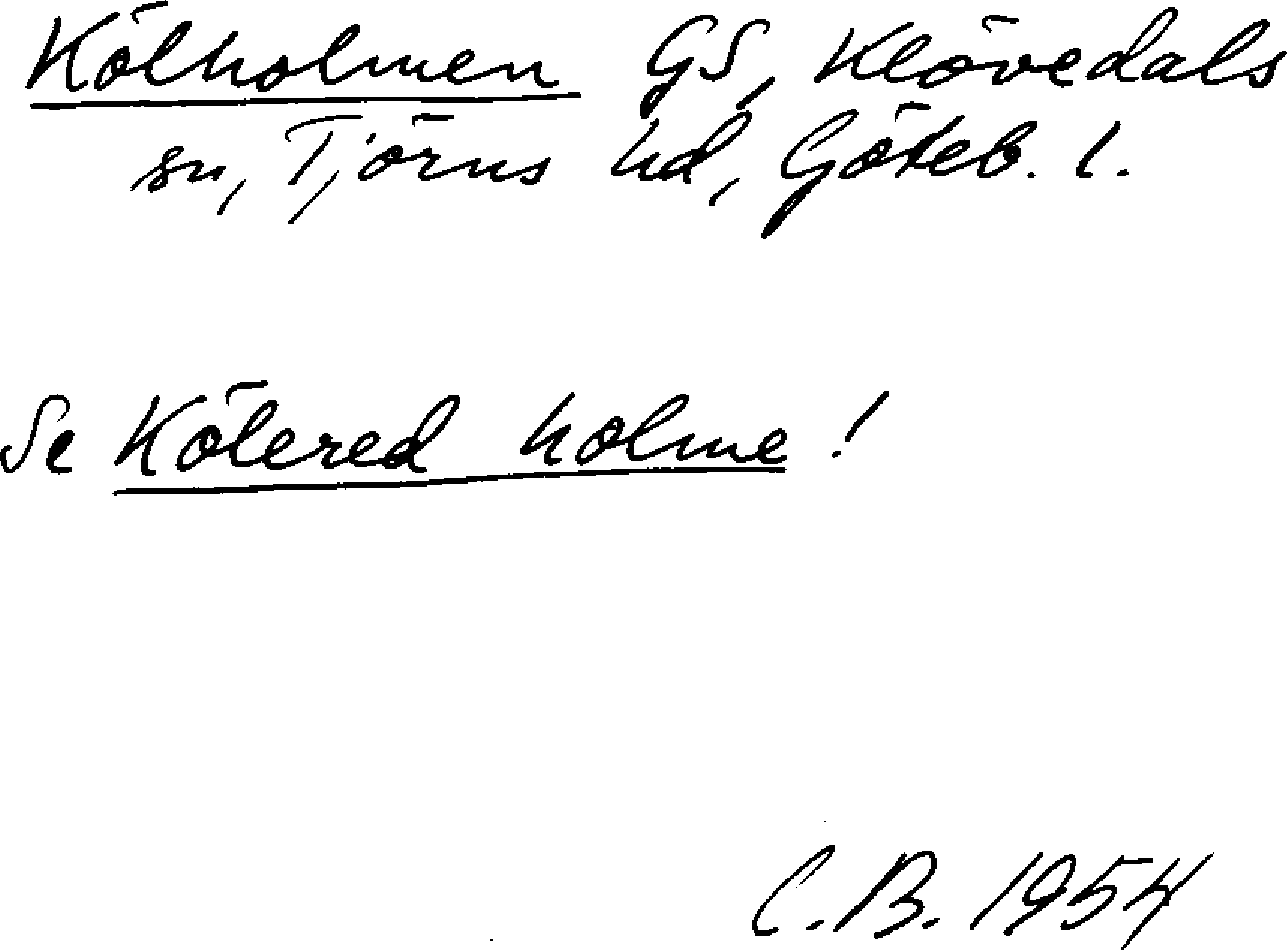 Kölholmen GS, Klövedals
sn, Tjörns hd, Göteb. l.
Se Kölered holme!
C.B. 1954